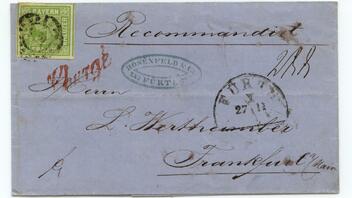 BAYERN
Recommandirt
Charge
288
ROSENFELD & Co
FÜRTH
FÜRTH
27 11
Herrn
L. Wertheimber
Frankfurt a/Main